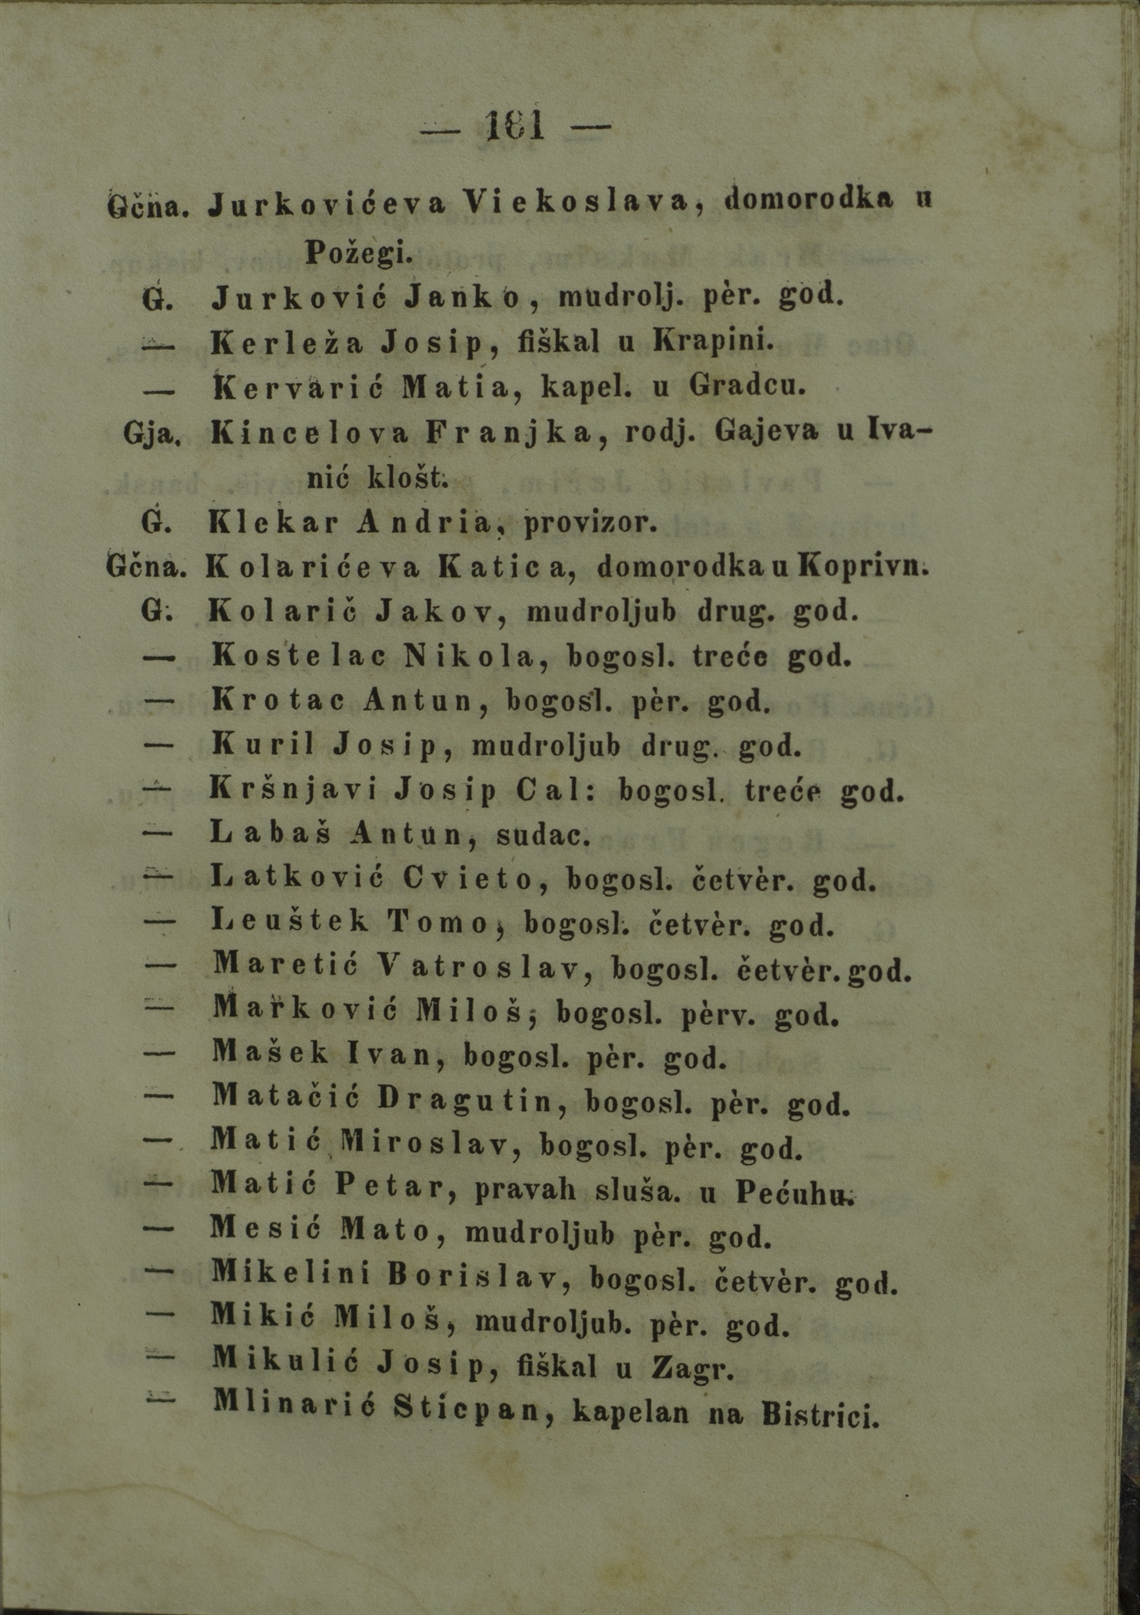 — 161 —
Gčna. Jurkovićeva Viekoslava, domorodka u
Požegi.
G. Jurković Janko, mudrolj. pèr. god.
— Kerleža Josip, fiškal u Krapini.
— Kervarić Matia, kapel. u Gradcu.
Gja. Kincelova Franjka, rodj. Gajeva u Iva-
nić klošt.
G. Klekar Andria, provizor.
Gčna. Kolarićeva Katica, domorodka u Koprivn.
G. Kolarič Jakov, mudroljub drug. god.
— Kostelac Nikola, bogosl. treće god.
— Krotac Antun, bogosl. pèr. god.
— Kuril Josip, mudroljub drug. god.
— Kršnjavi Josip Cal: bogosl. treće god.
— Labaš Antun, sudac.
— Latković Cvieto, bogosl. četvèr. god.
— Leuštek Tomo, bogosl. četvèr. god.
— Maretić Vatroslav, bogosl. četvèr. god.
— Marković Miloš, bogosl. pèrv. god.
— Mašek Ivan, bogosl. pèr. god.
— Matačić Dragutin, bogosl. pèr. god.
— Matić Miroslav, bogosl. pèr. god.
— Matić Petar, pravah sluša. u Pećuhu.
— Mesić Mato, mudroljub pèr. god.
— Mikelini Borislav, bogosl. četvèr. god.
— Mikić Miloš, mudroljub. pèr. god.
— Mikulić Josip, fiškal u Zagr.
— Mlinarić Stiepan, kapelan na Bistrici.